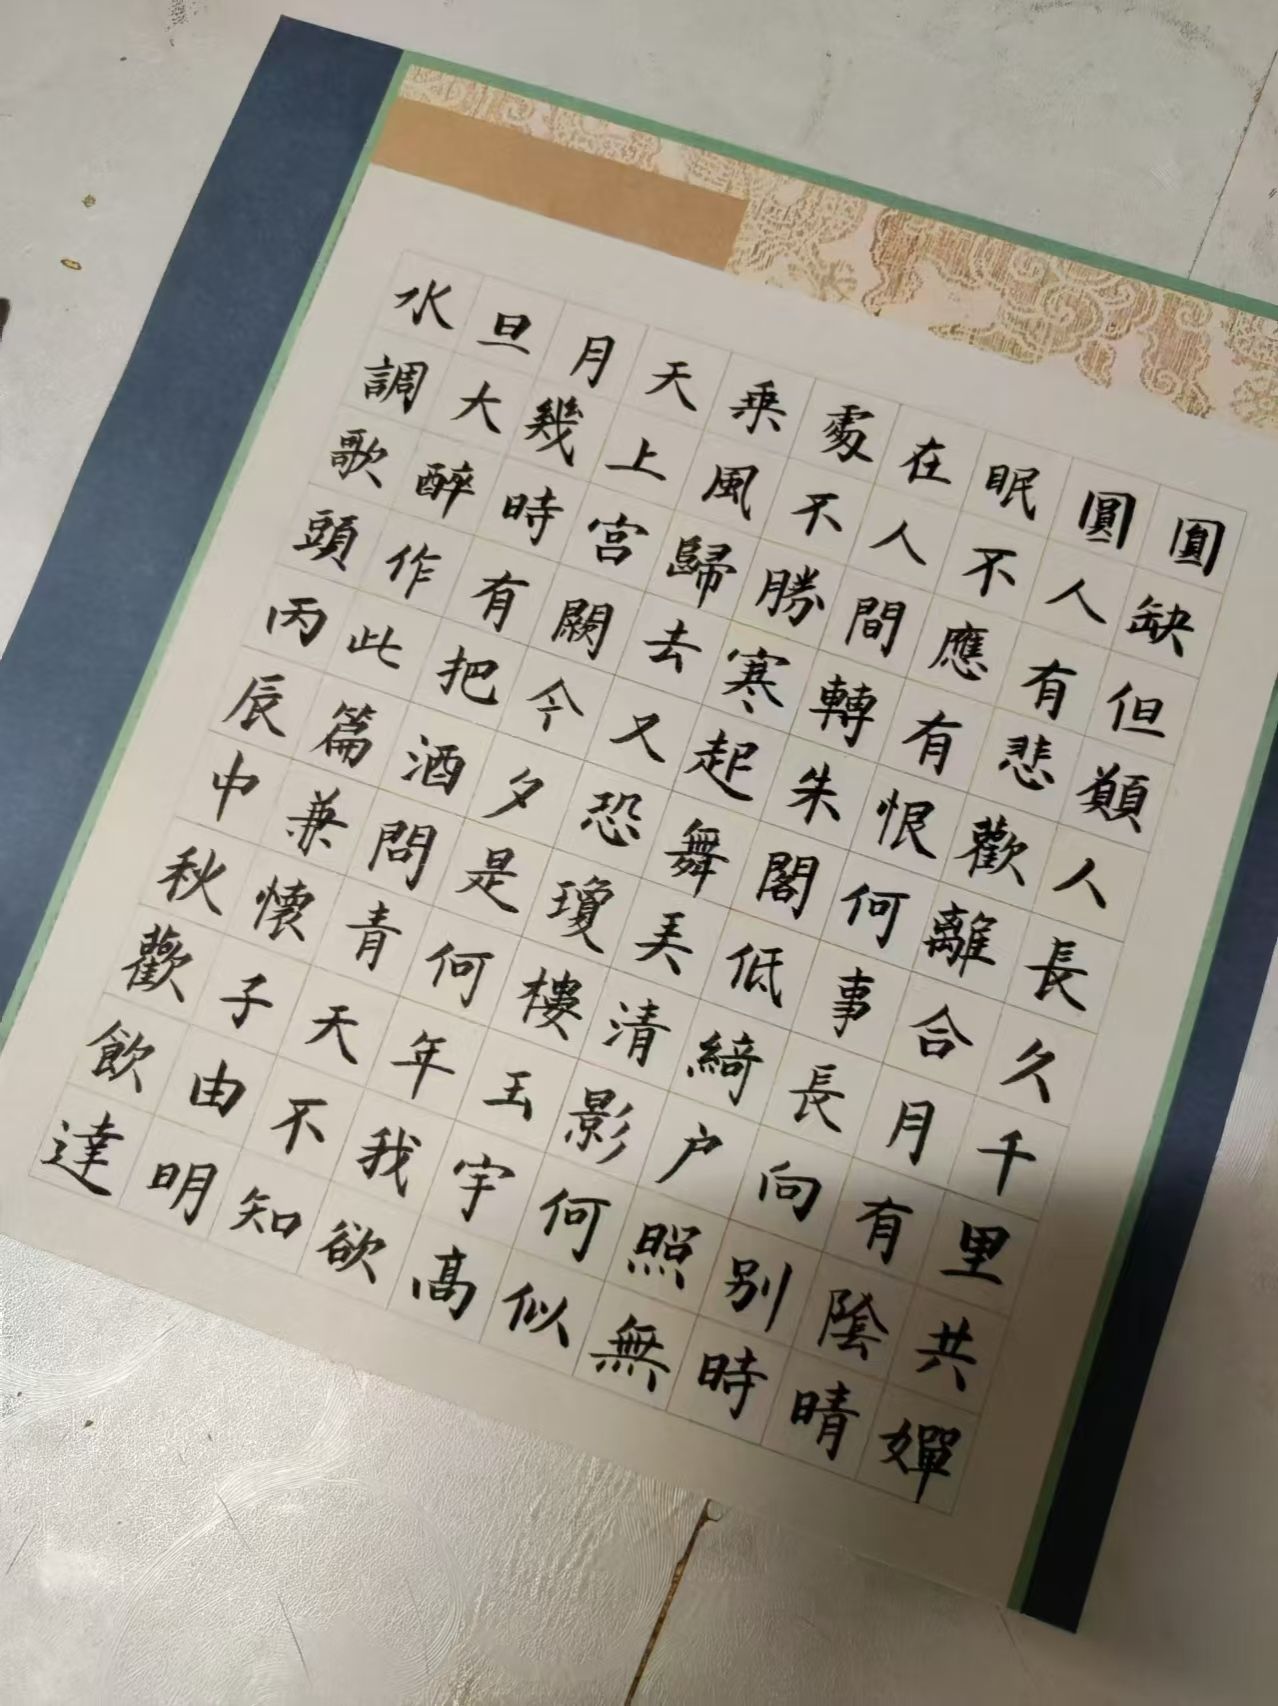 水調歌頭丙辰中秋歡飲達
旦大醉作此篇兼懷子由明
月幾時有把酒問青天不知
天上宮闕今夕是何年我欲
乗風歸去又恐瓊樓玉宇髙
處不勝寒起舞弄清影何似
在人間轉朱閣低綺户照無
眠不應有恨何事長向别時
圓人有悲歡離合月有陰晴
圓缺但願人長久千里共嬋